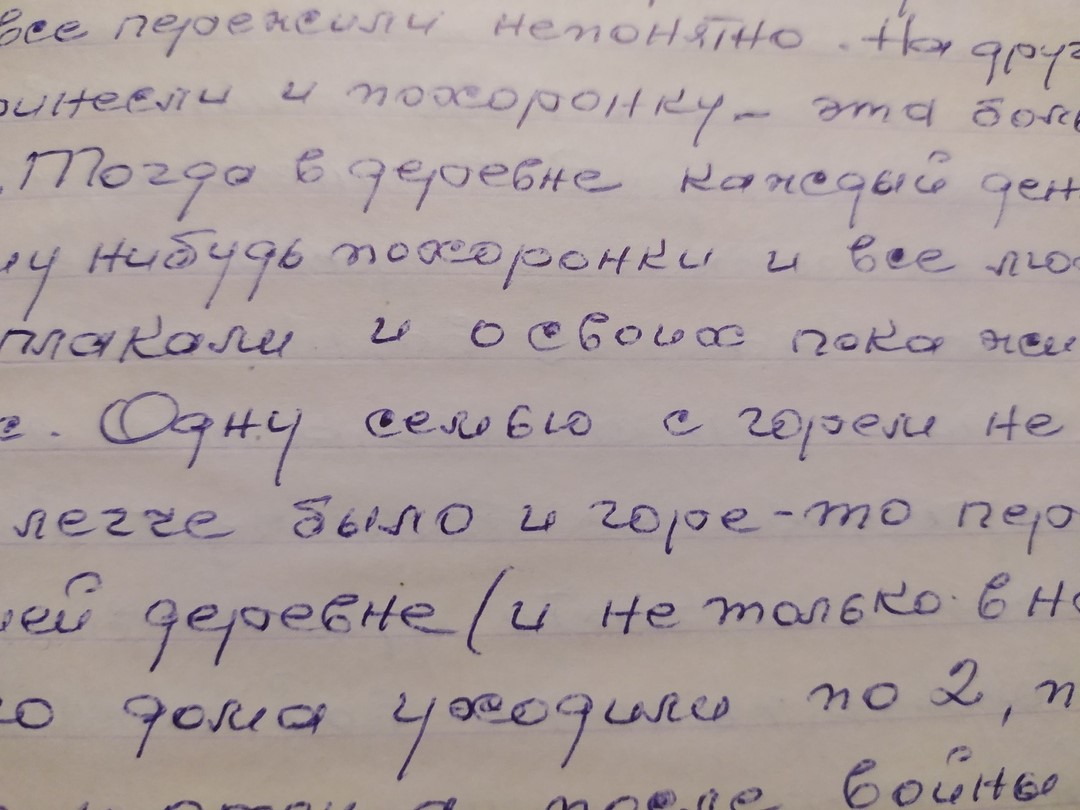 все пережили непонятно. На друг
ринесли и похоронку – эта боль
. Тогда в деревне каждый ден
му нибудь похоронки и все лю
плакали и о своих пока жи
с. Одну семью с горем не
легче было и горе-то пер
шей деревне (и не только в на
го дома уходили по 2, п
после войны